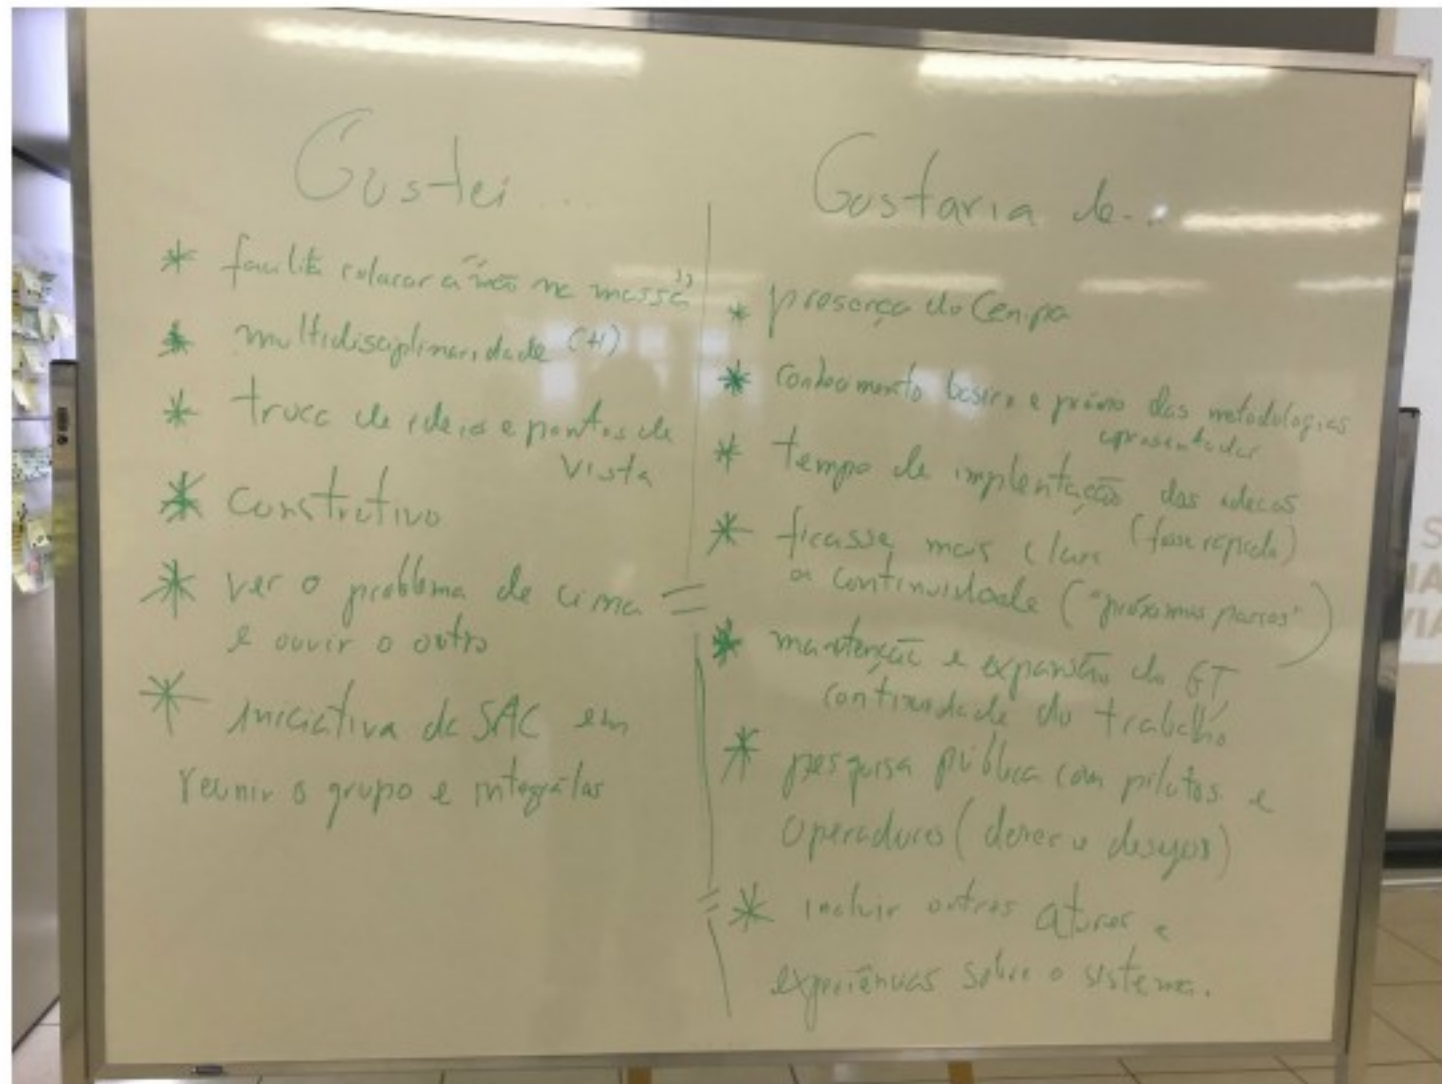 Gostei ...
* facilita colocar a "mão na massa"
* multidisciplinaridade (+1)
* troca de ideias e pontos de
vista
* Construtivo
* ver o problema de cima
e ouvir o outro
* iniciativa da SAC em
reunir o grupo e integrá-los
Gostaria de...
* presença do Cenipa
* conhecimento básico e prévio das metodologias
apresentadas
* tempo de implentação das ideias
(fosse rápida)
* ficasse mais clara
a continuidade ("próximos passos")
* manutenção e expansão do GT
continuidade do trabalho
* pesquisa pública com pilotos e
operadores (dores e desejos)
* incluir outros atores e
experiências sobre o sistema.
S
IA
VIA